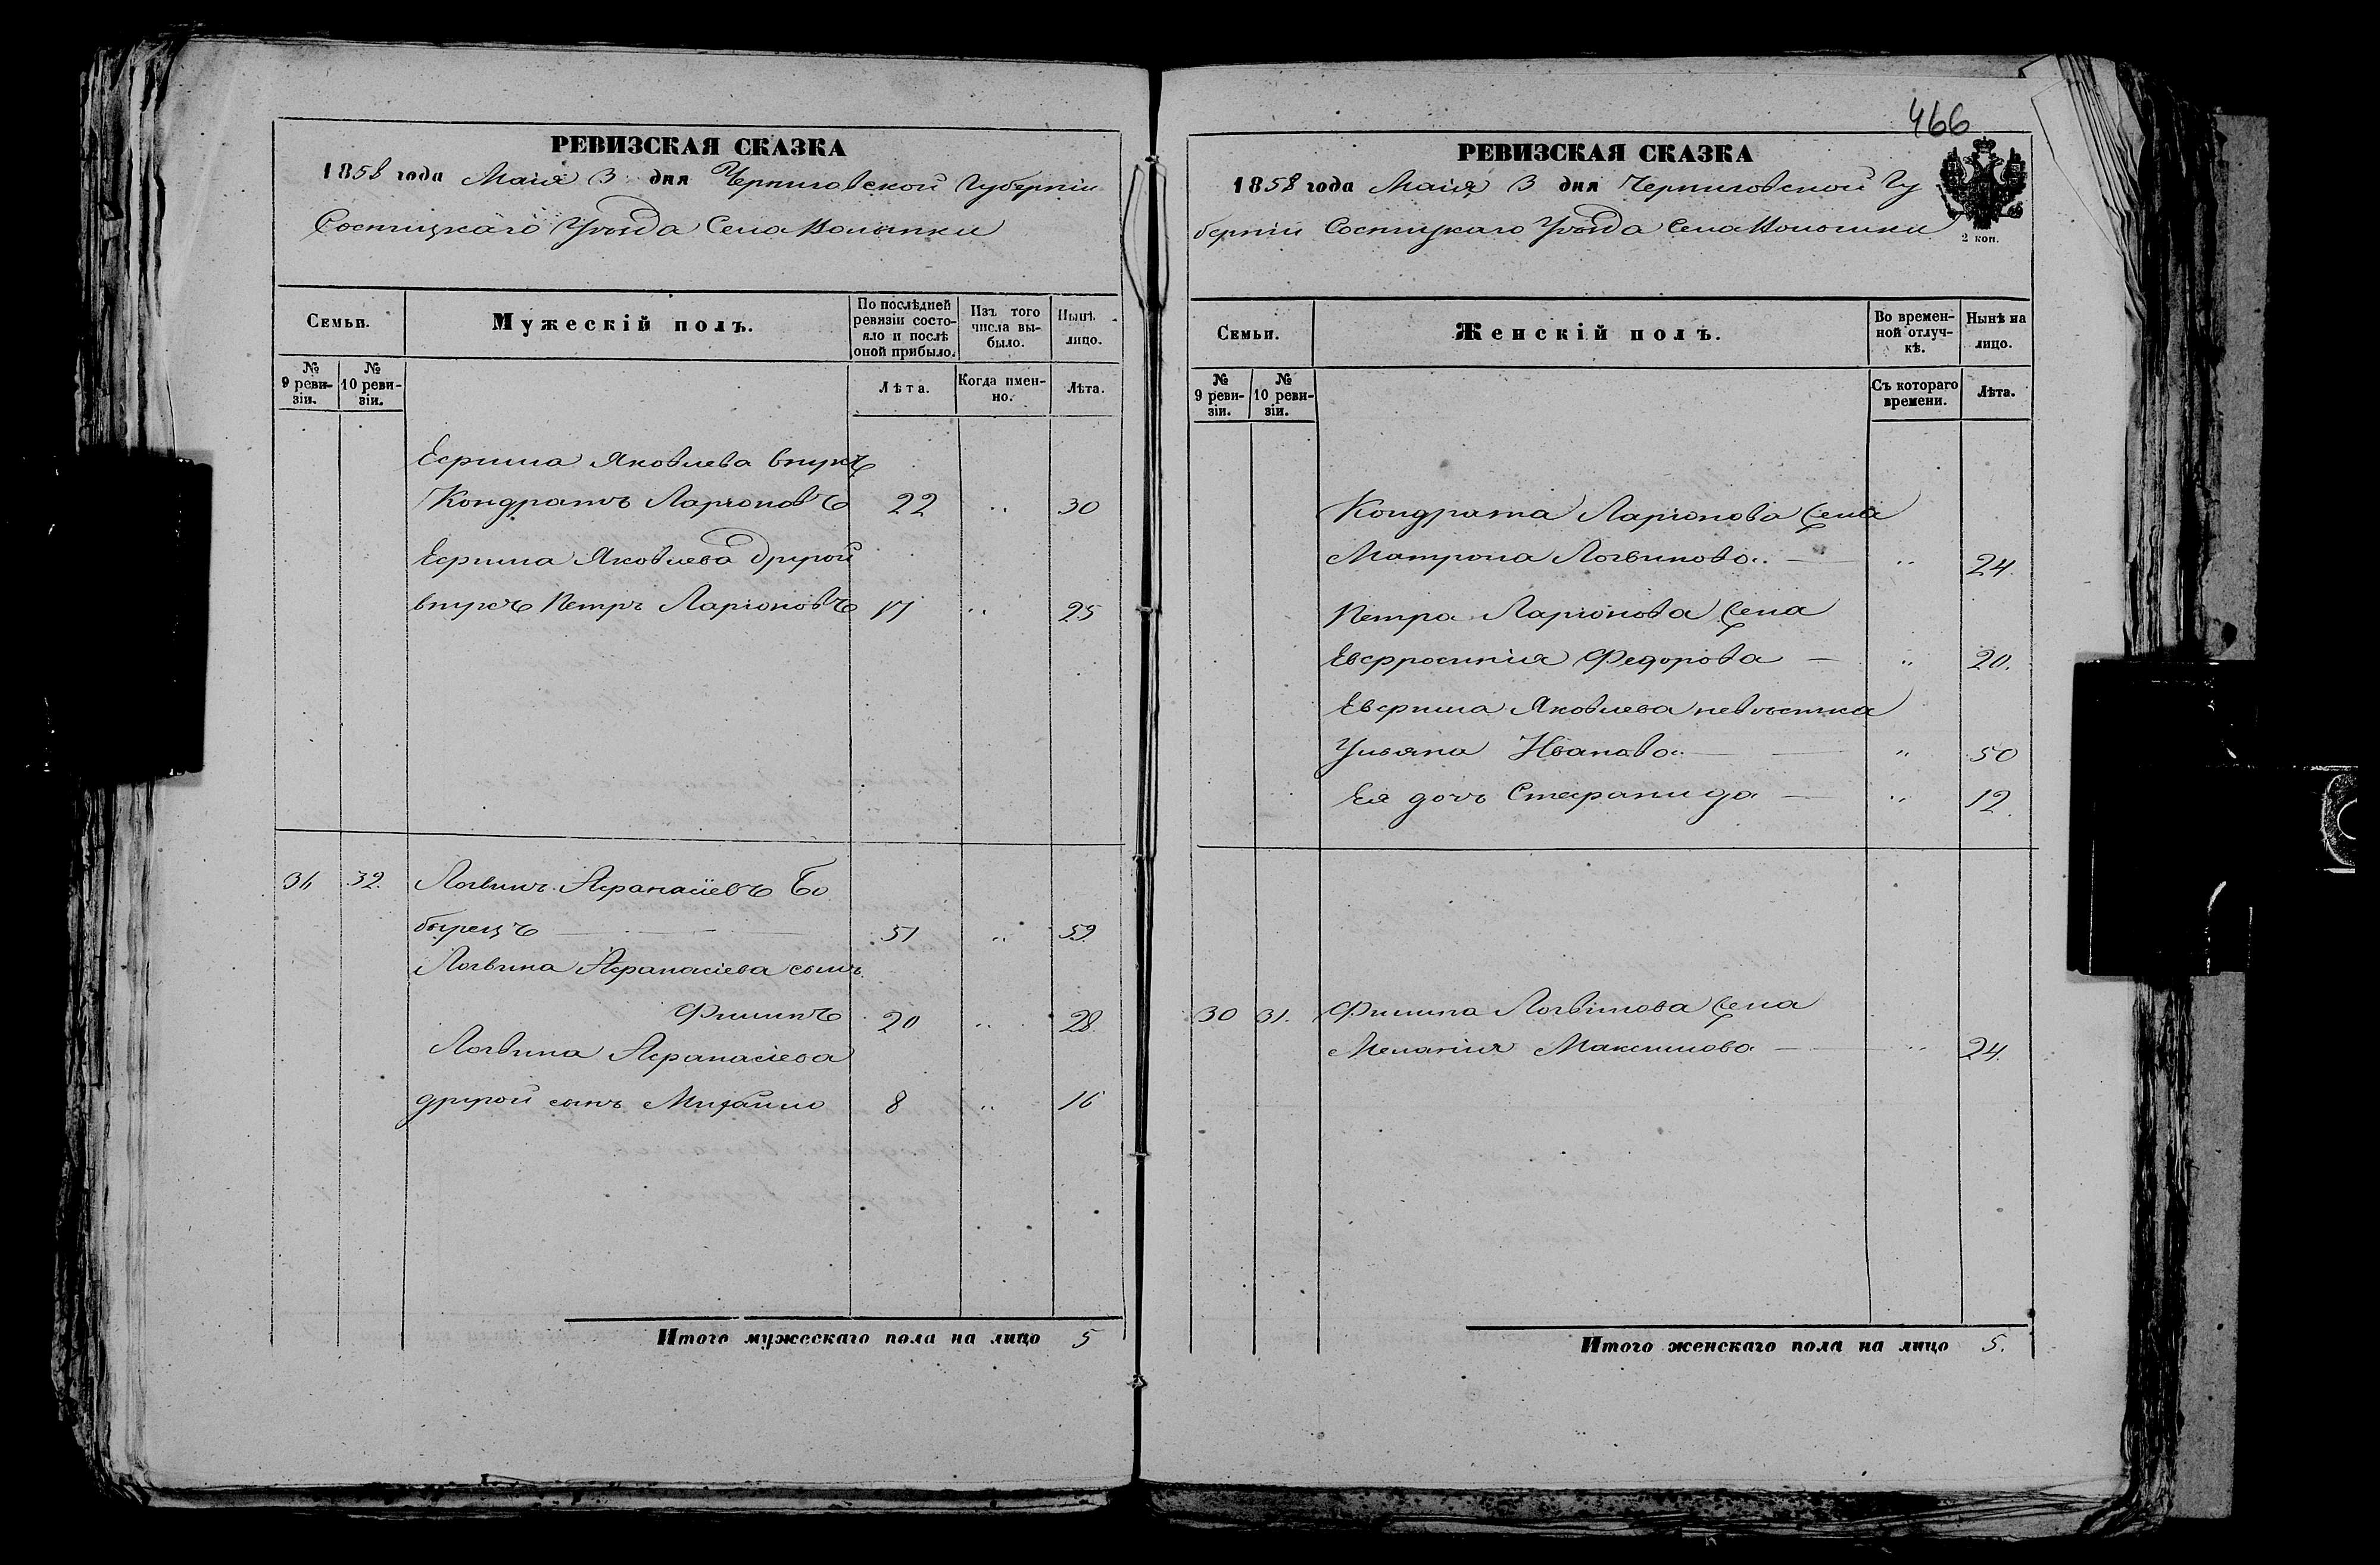 РЕВИЗСКАЯ СКАЗКА
1858 года Маія 3 дня Черниговской Губерніи
Сосницкаго Уѣзда Села Волынки
Семьи.
Мужескій полъ.
По послѣдней ревизіи состояло и послѣ оной прибыло.
Изъ того числа выбыло.
Нынѣ лицо.
№ 9 ревизіи.
№ 10 ревизіи.
Лѣта.
Когда именно.
Лѣта.
Ефима Яковлева внукъ
Кондратъ Ларіоновъ 22 " 30
Ефима Яковлева другой
внукъ Петръ Ларіоновъ 17 " 25
31 32. Логвинъ Афанасіевъ Бо
бырецъ 51 " 59
Логвина Афанасіева сынъ
Филипъ 20 " 28
Логвина Афанасіева
другой сынъ Михайло 8 " 16
Итого мужескаго пола на лицо 5
466
РЕВИЗСКАЯ СКАЗКА
1858 года Маія 3 дня Черниговской Гу
берніи Сосницкаго Уѣзда Села Волынки
2 коп.
Семьи.
Женскій полъ.
Во временной отлучкѣ.
Нынѣ на лицо.
№ 9 ревизіи.
№ 10 ревизіи.
Съ котораго времени.
Лѣта.
Кондрата Ларіонова жена
Матрона Логвинова " 24.
Петра Ларіонова жена
Евфросинія Федорова " 20.
Евфима Яковлева невѣстка
Ульяна Иванова " 50
Ея дочь Стефанида " 12.
30 31. Филипа Логвинова жена
Меланія Максимова " 24.
Итого женскаго пола на лицо 5.